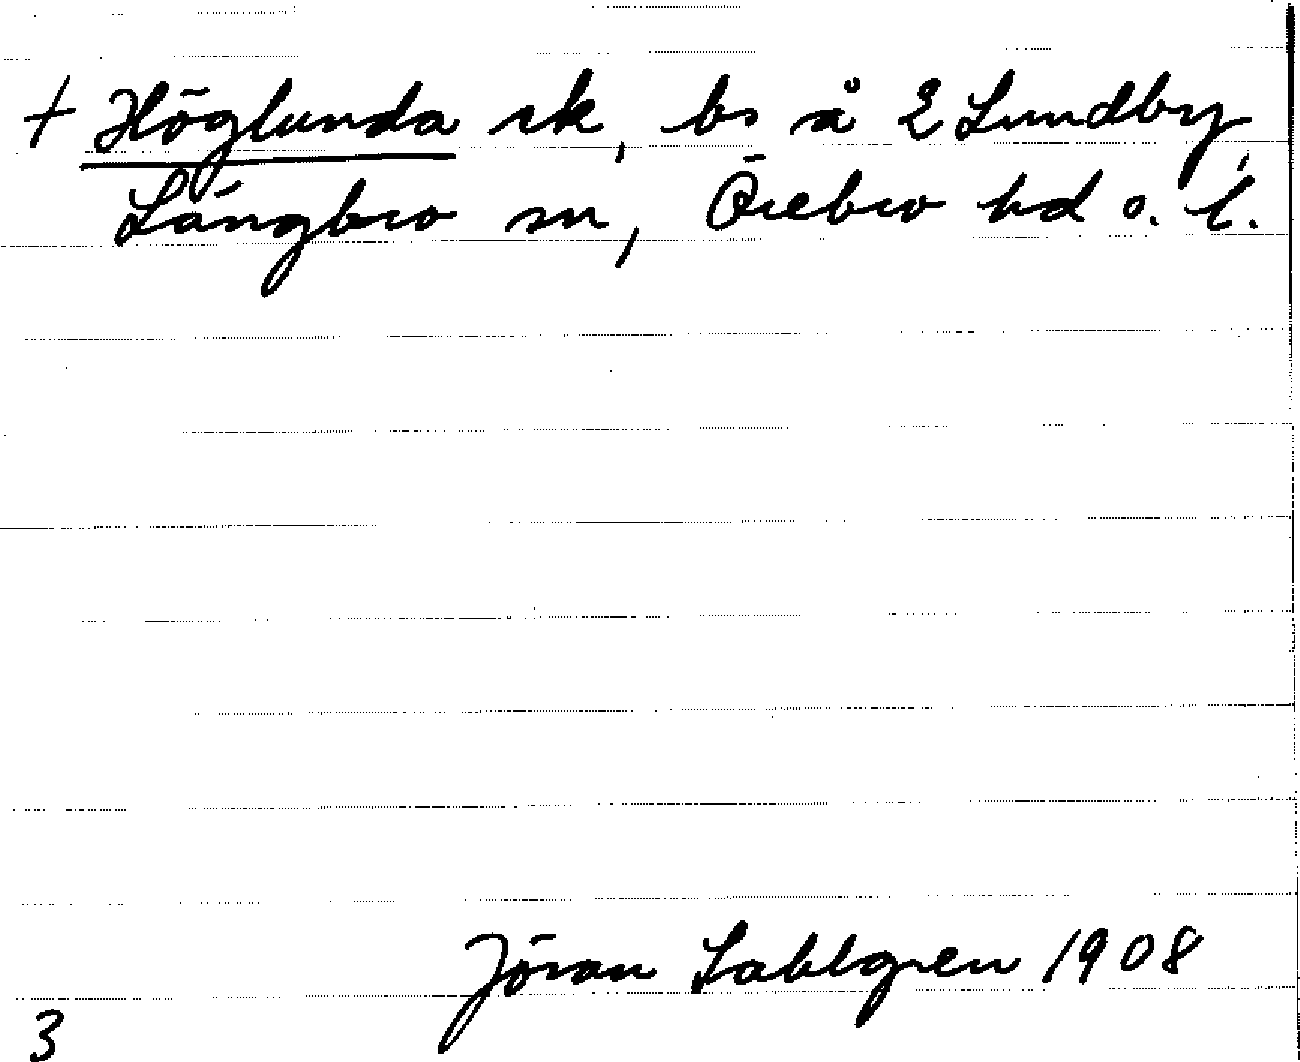 + Höglunda rk, bs å 2 Lundby,
Längbro sn, Örebro hd o. l.
Jöran Sahlgren 1908
3